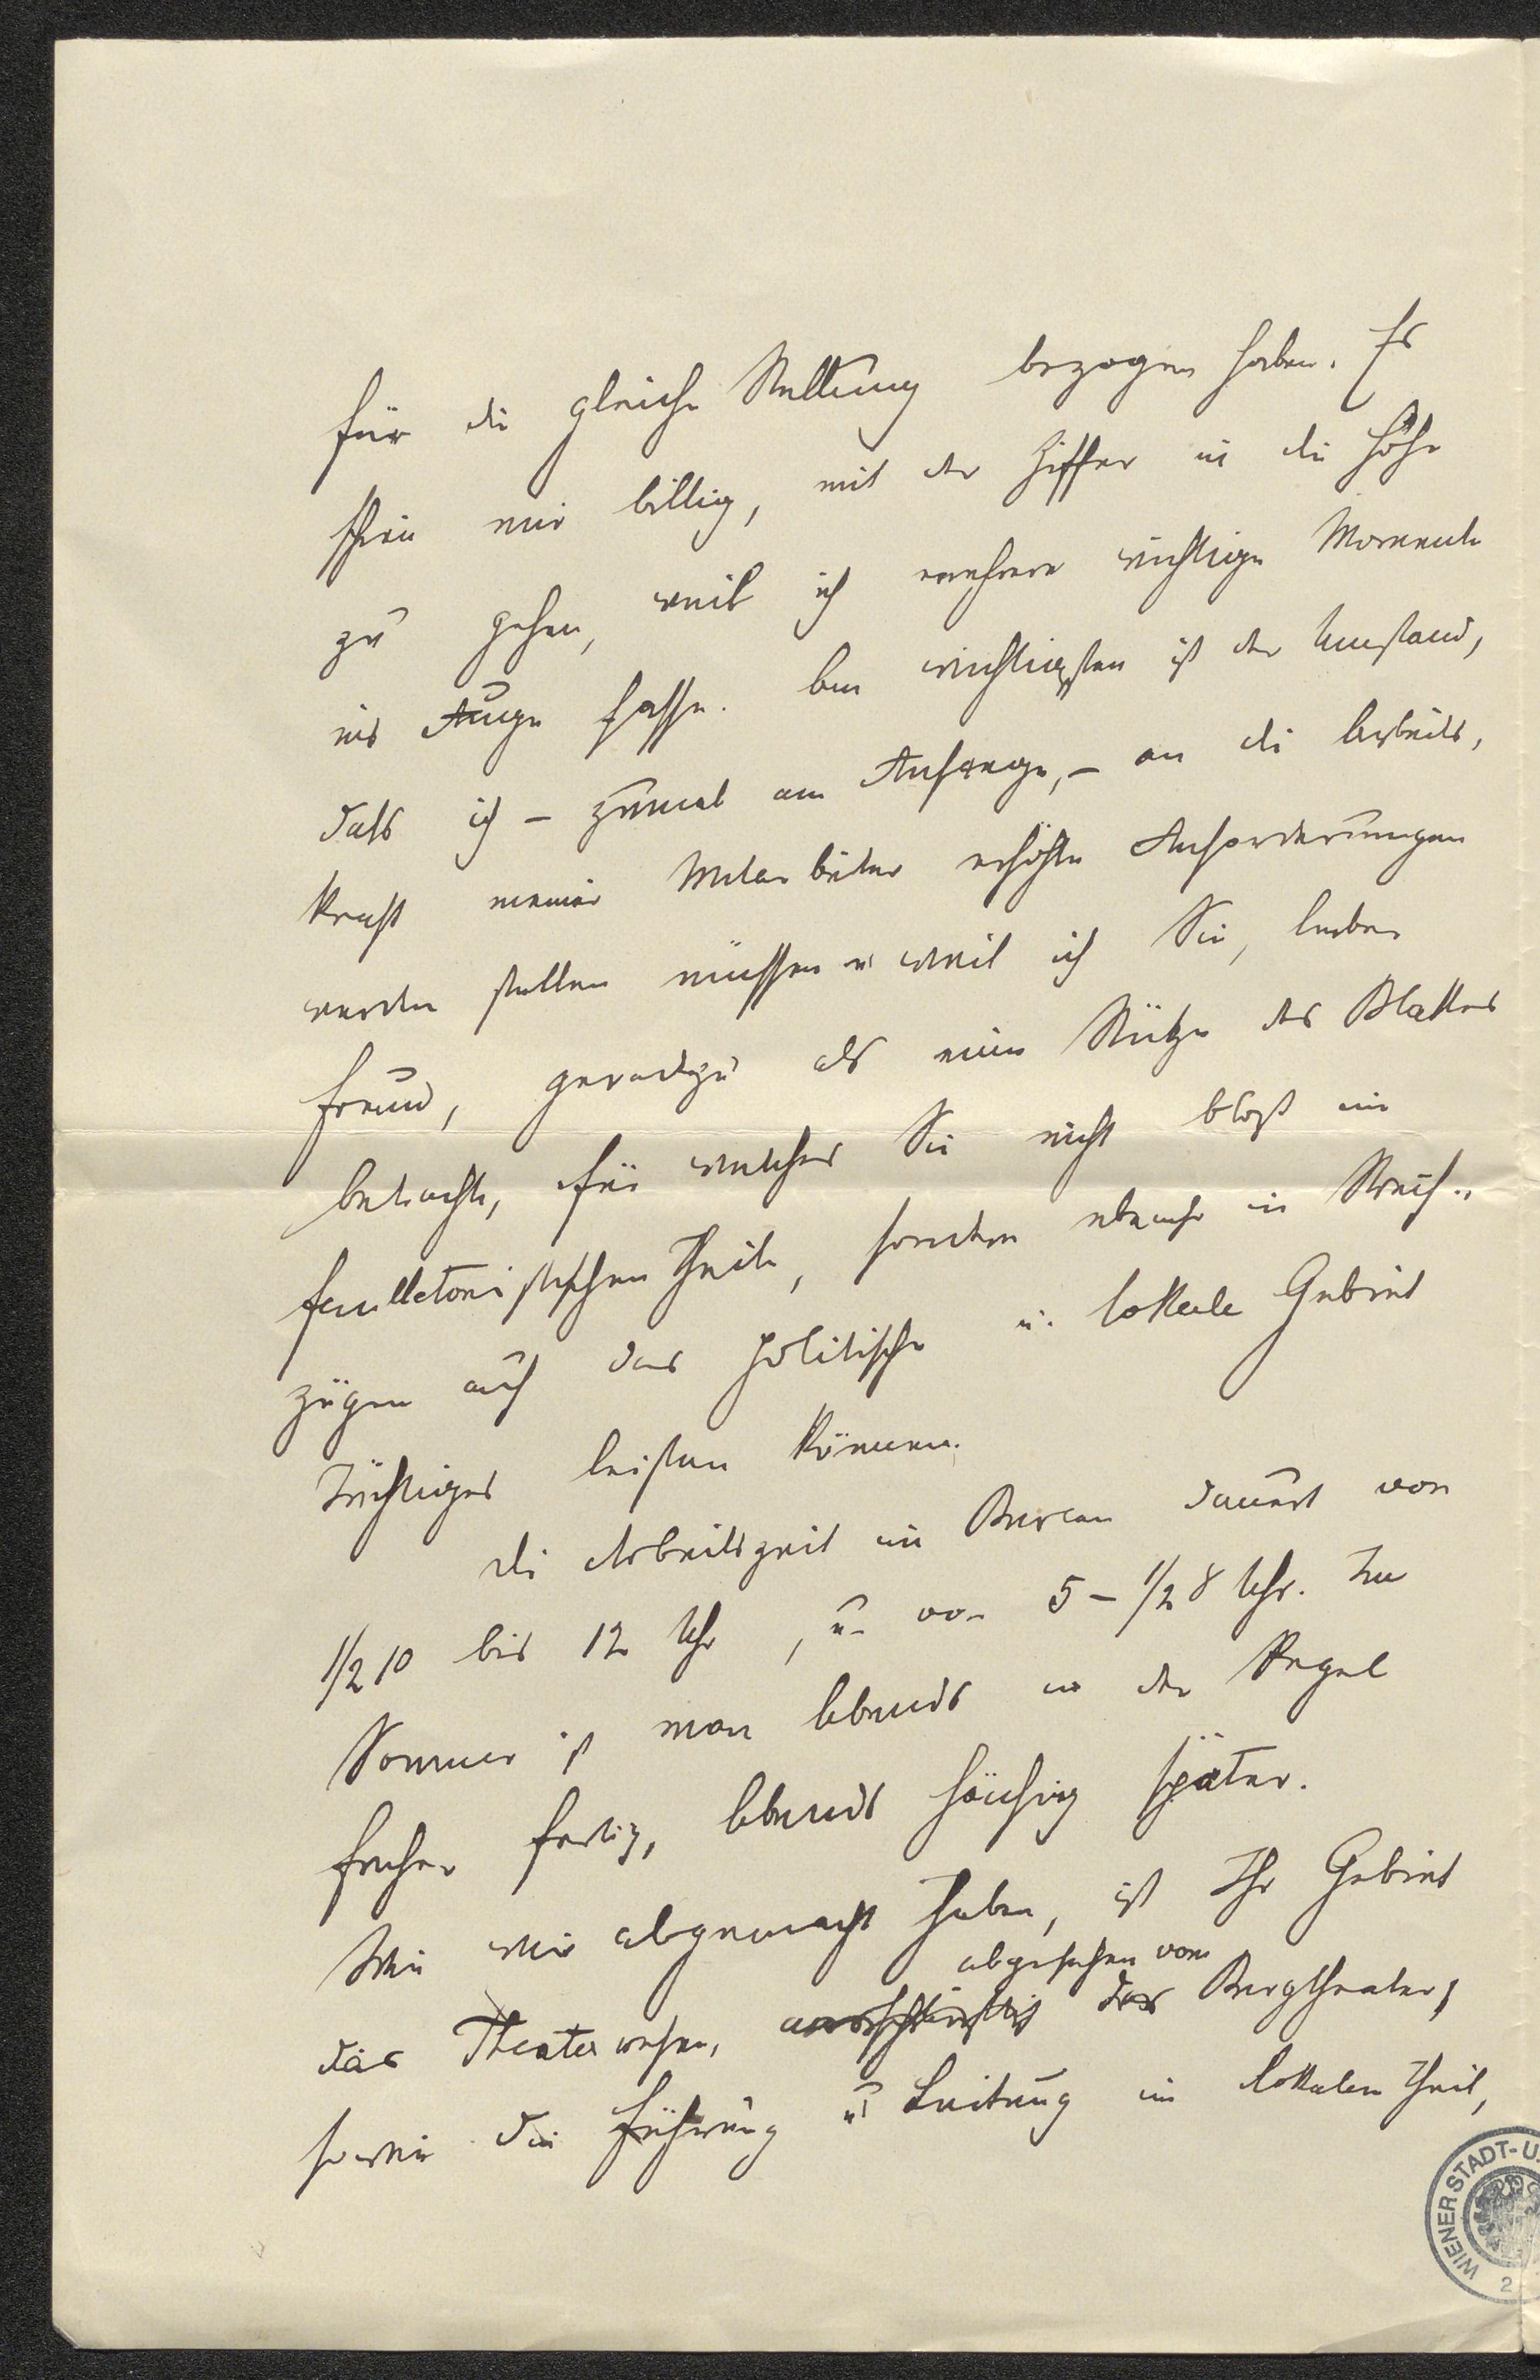 für die gleiche Stellung bezogen haben. Es
schien mir billig, mit der Ziffer in die Höhe
zu gehen, weil ich mehrere wichtige Momente
ins Auge fasse. Am wichtigsten ist der Umstand,
daß ich – zumal am Anfange, – an die Arbeits,
kraft meiner Mitarbeiter erhöhte Anforderungen
werde stellen müssen u weil ich Sie, lieber
Freund, geradezu als eine Stütze des Blattes
betrachte, für welches Sie nicht bloß im
feuilletonistischen Theile, sondern ebenso in Streif..
zügen auf das politische u. lokale Gebiet
Tüchtiges leisten können.
Die Arbeitszeit im Bureau dauert von
1/2 10 bis 12 Uhr, u. von 5 – 1/2 8 Uhr. Im
Sommer ist man Abends in der Regel
früher fertig, Abends häufig später.
Wie wir abgemacht haben, ist Ihr Gebiet
abgesehen vom
das Theaterwesen, das Burgtheater,
sowie die Führung u Leitung im lokalen Theil,
WIENER STADT- U.
2